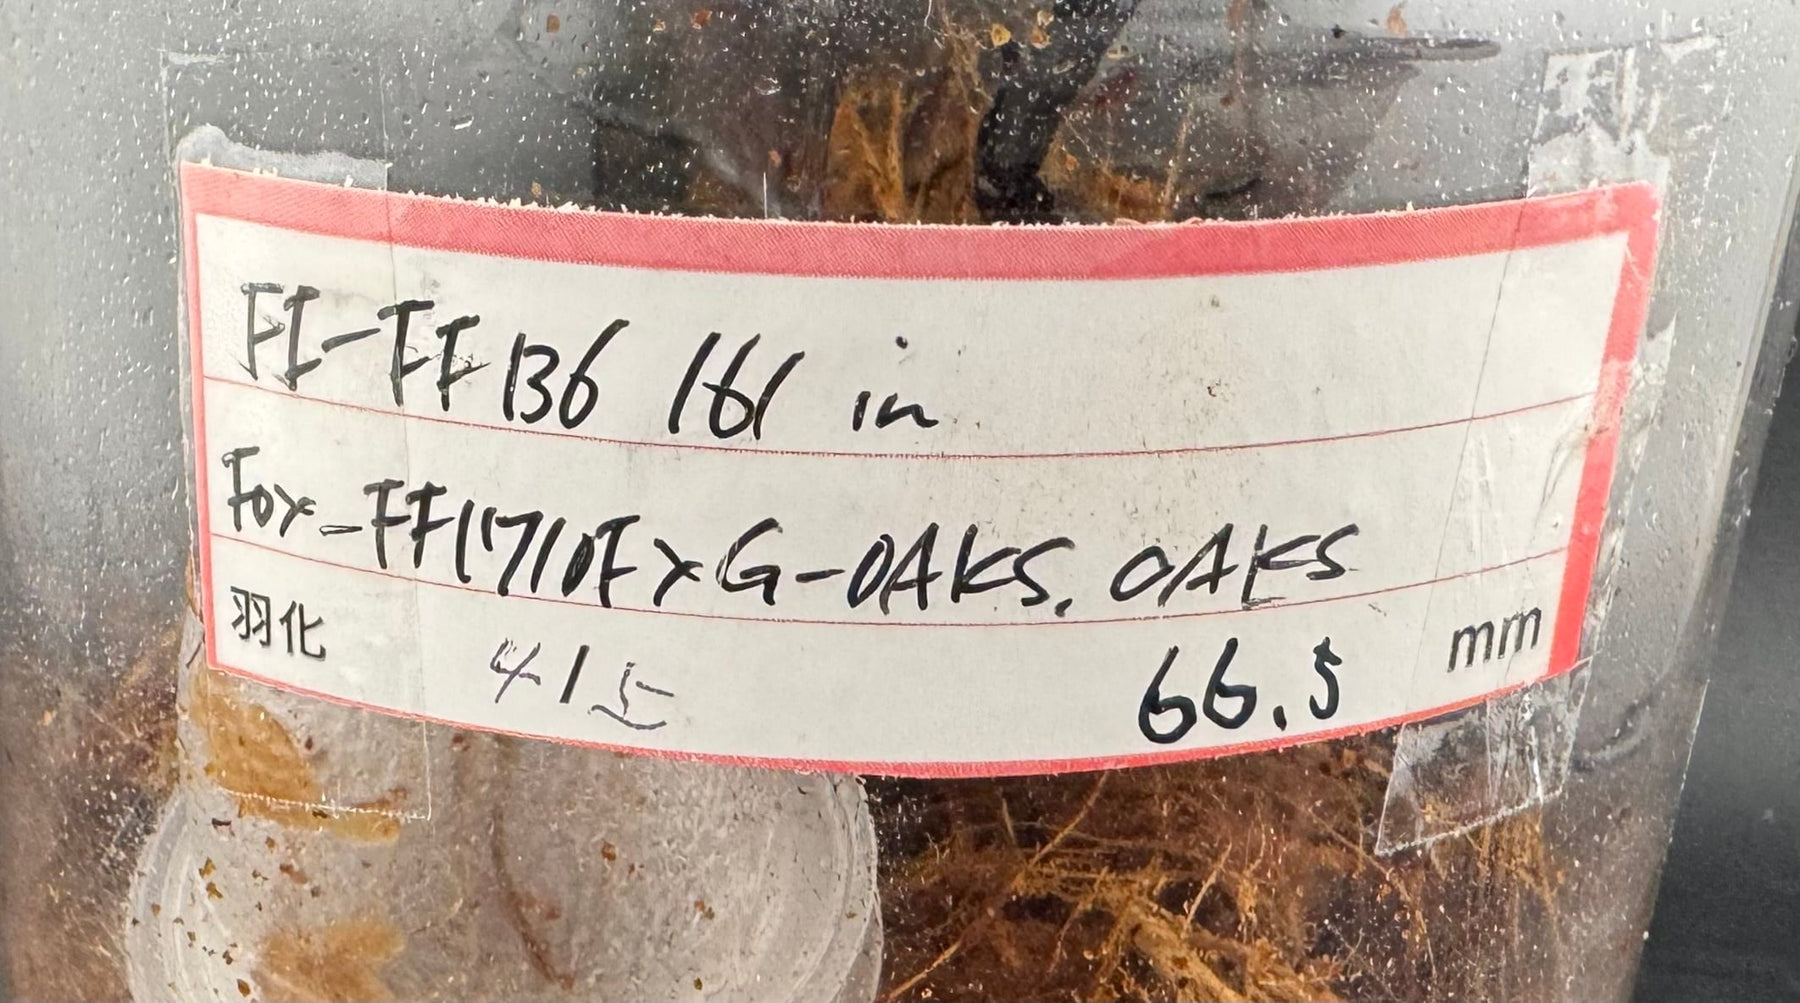 FI-FF136 161 in
For-FF1710FxG-OAKS. OAKS
羽化 66.5 mm